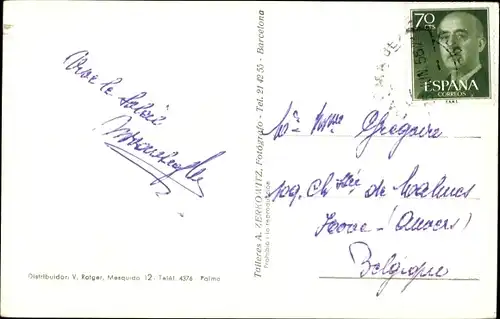 70
CTS
ESPAÑA
CORREOS
Vive le soleil
Mr Mme Grégoire
109, Ch ssée de Malines
(Anvers)
Belgique
Talleres A. ZERKOWITZ, Fotógrafo - Tel. 21 42 55 - Barcelona
Prohibida la reproducción
Distribuidor: V. Rotger, Mesquida 12 - Teléf. 4376 Palma